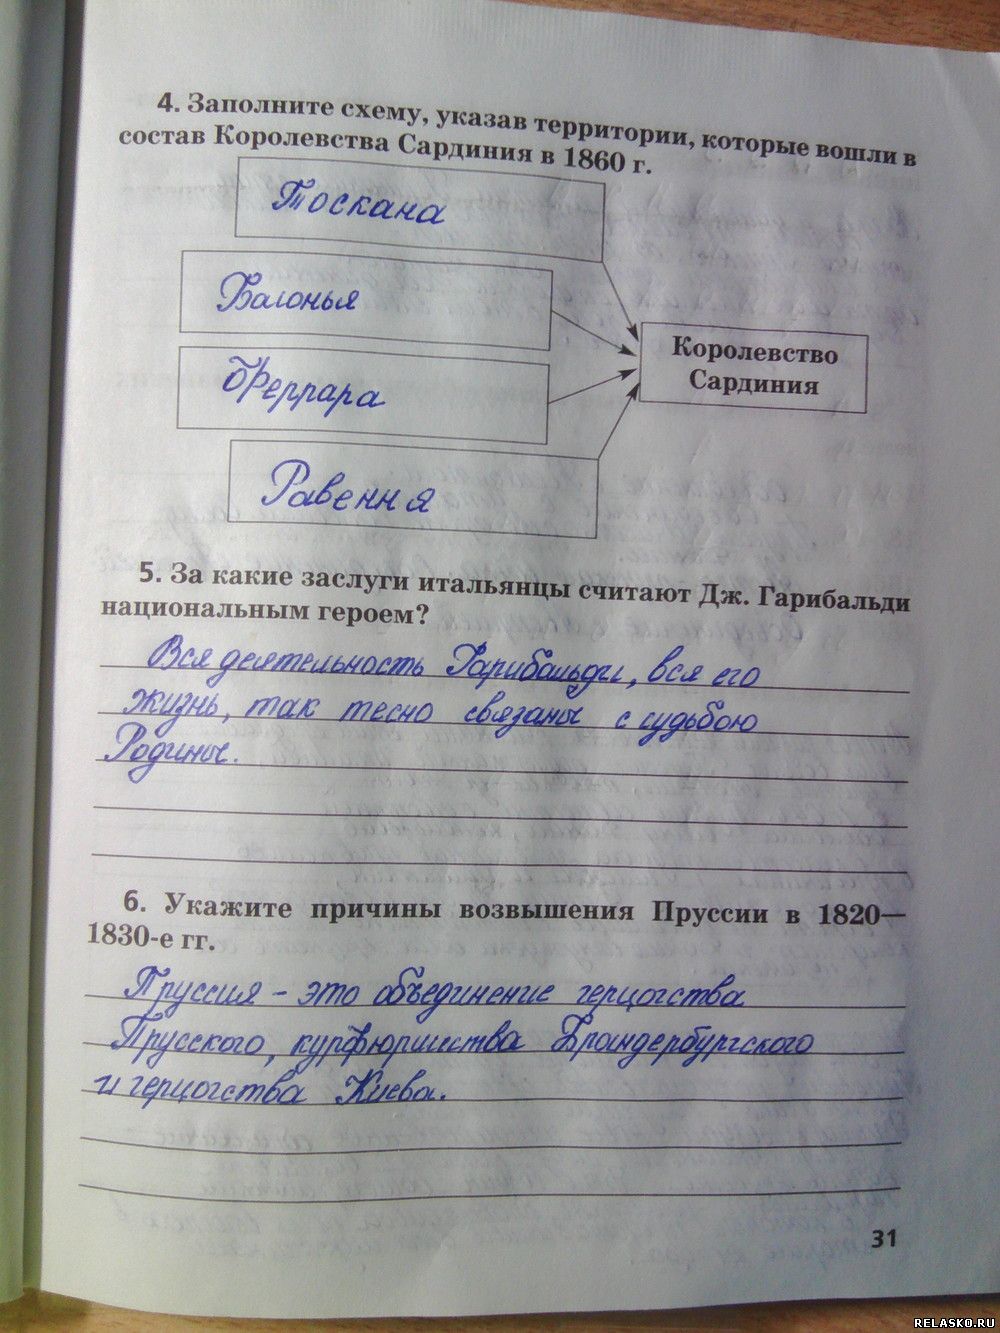 4. Заполните схему, указав территории, которые вошли в
состав Королевства Сардиния в 1860 г.
Тоскана
Балонья
Феррара
Равення
Королевство
Сардиния
5. За какие заслуги итальянцы считают Дж. Гарибальди
национальным героем?
Вся деятельность Гарибальди, вся его
жизнь, так тесно связаны с судьбою
Родины.
6. Укажите причины возвышения Пруссии в 1820—
1830-е гг.
Пруссия - это объединение герцогства
Прусского, курфюршества Брандербургского
и герцогства Киева.
31
RELASKO.RU